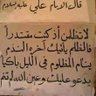 قال الإمام علي عليه السلام
لا تظلمن إذا كنت مقتدرا
فالظلم يأتيك آخره الندم
ينام المظلوم في الليل باكيا
يدعو عليك وعين الله لم تنم